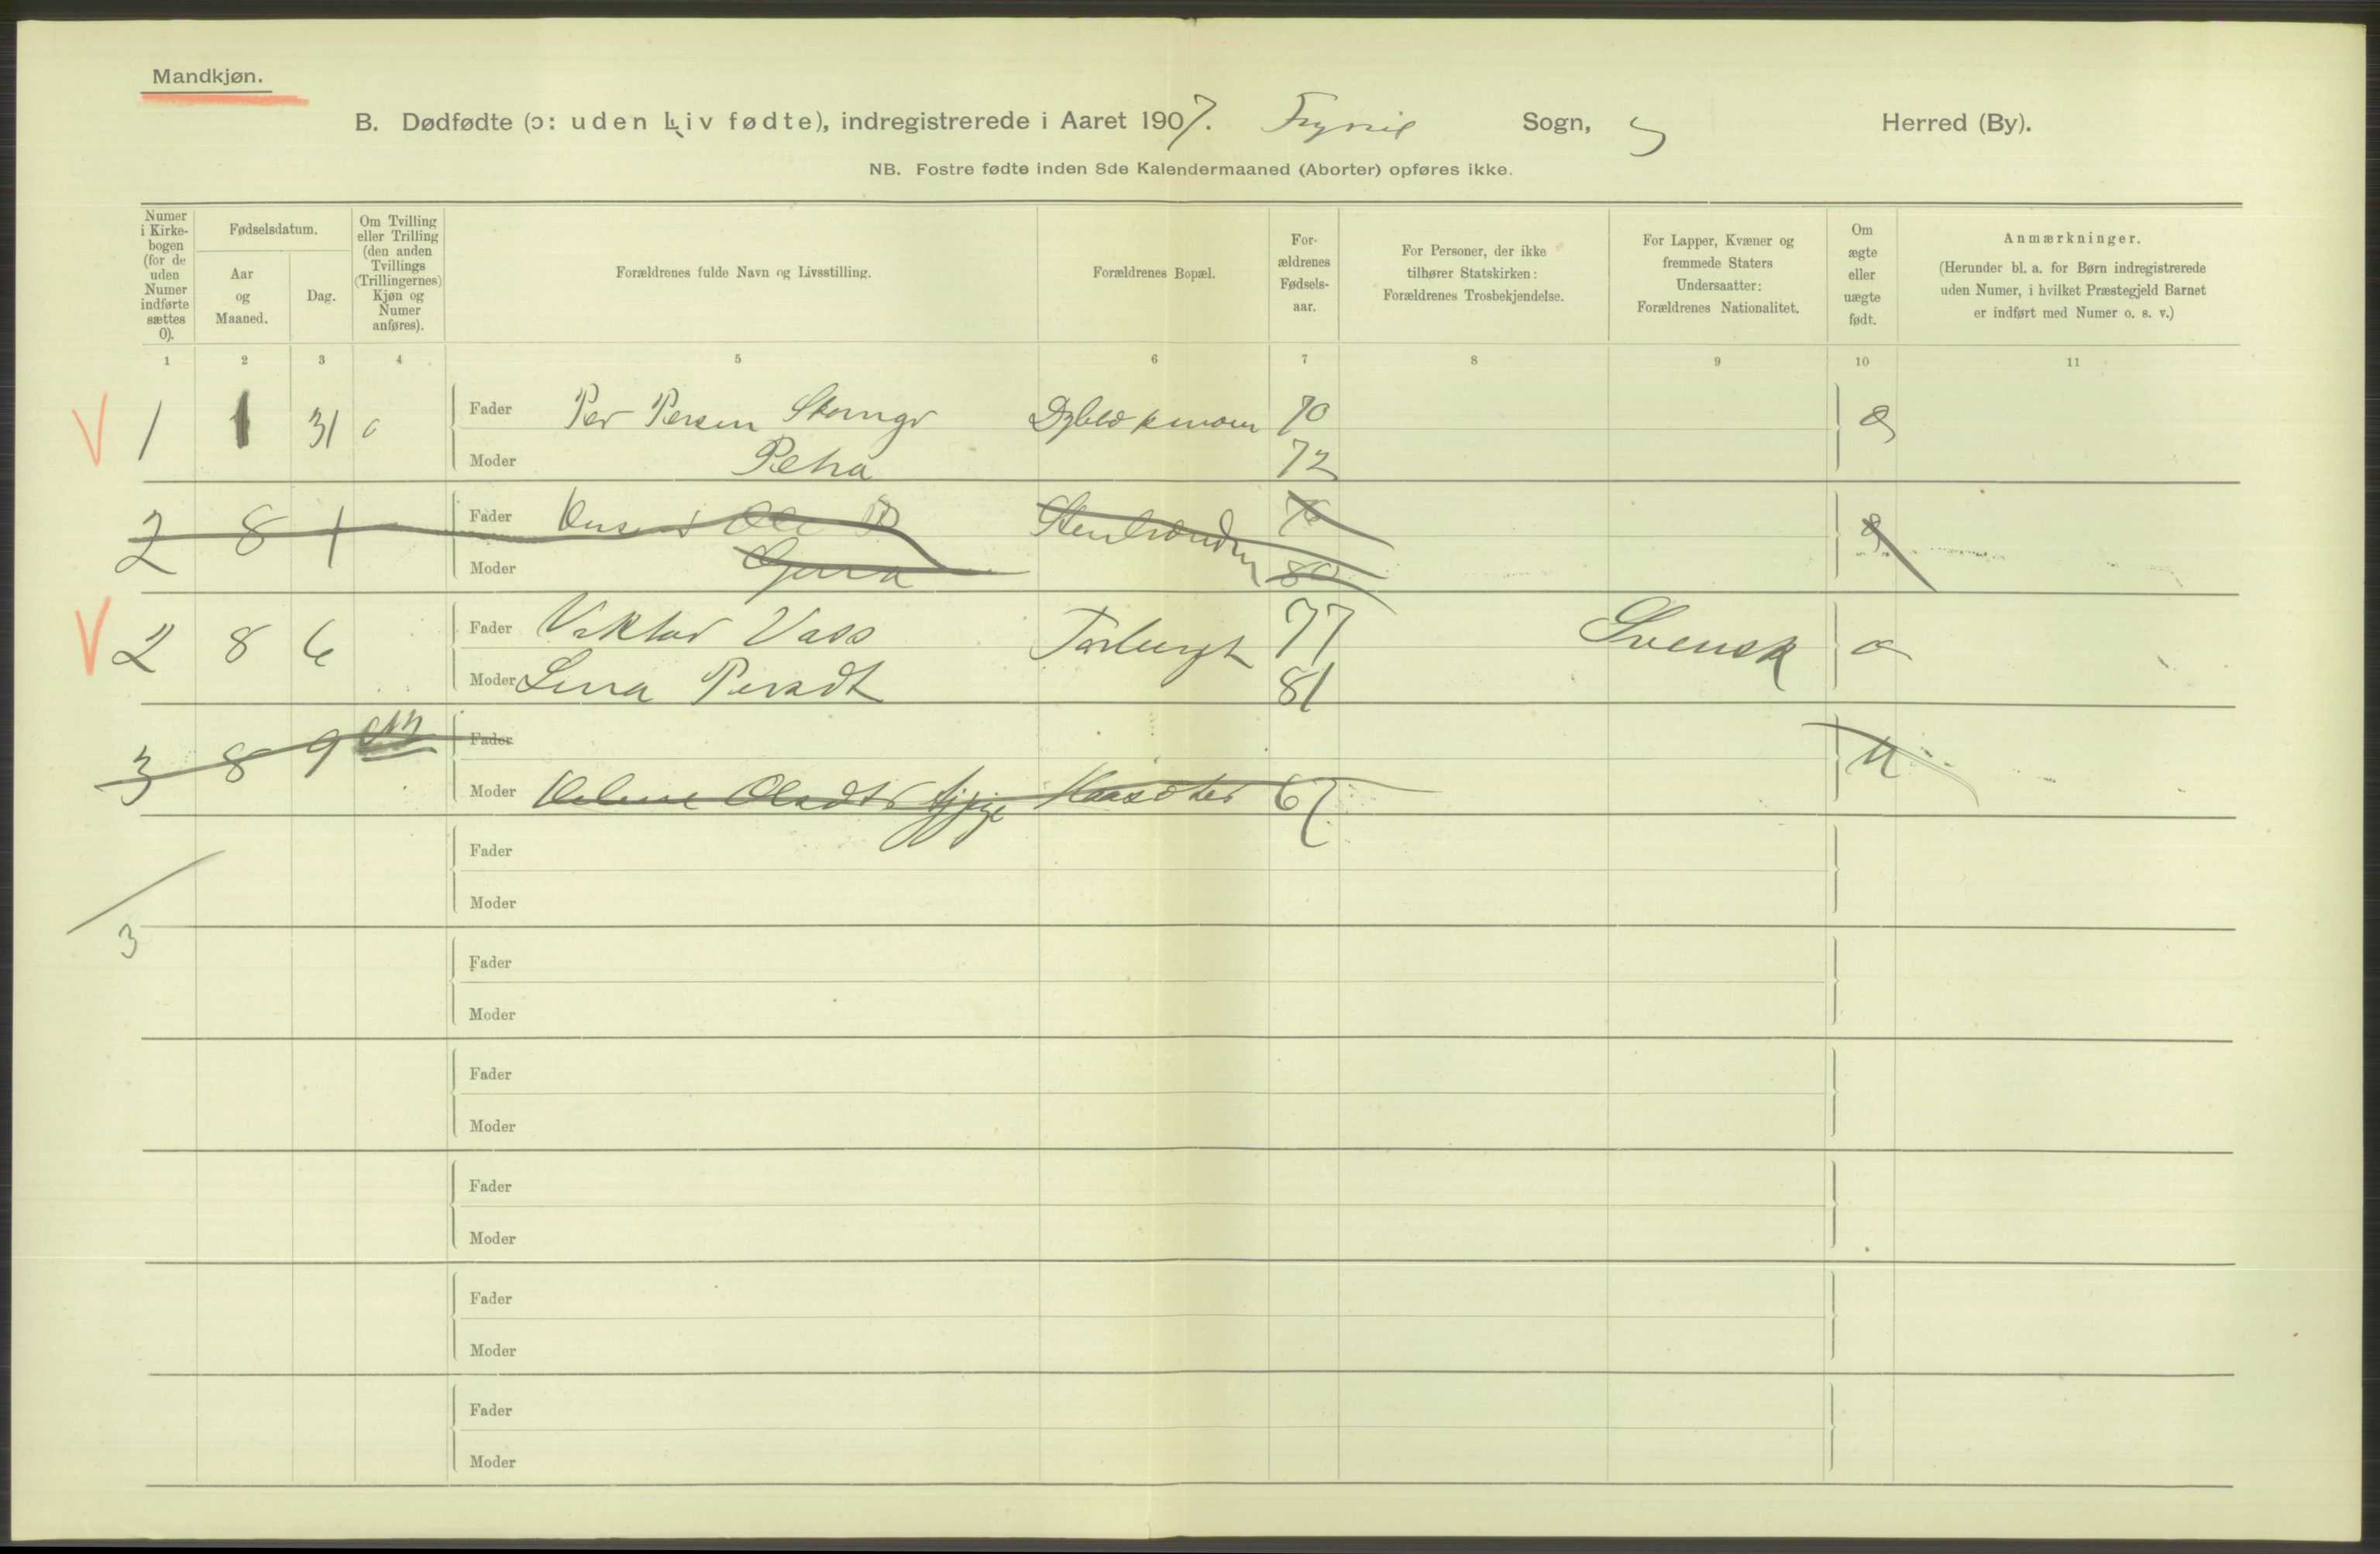 Mandkjøn.
B. Dødfødte (ɔ: uden Liv fødte), indregistrerede i Aaret 1907. Trysil Sogn, Herred (By).
NB. Fostre fødte inden 8de Kalendermaaned (Aborter) opføres ikke.
Numer i Kirke-bogen (for de uden Numer indførte sættes 0).
Fødselsdatum.
Aar og Maaned.
Dag.
Om Tvilling eller Trilling (den anden Tvillings (Trillingernes) Kjøn og Numer anføres).
Forældrenes fulde Navn og Livsstilling.
Forældrenes Bopæl.
For-ældrenes Fødsels-aar.
For Personer, der ikke tilhører Statskirken: Forældrenes Trosbekjendelse.
For Lapper, Kvæner og fremmede Staters Undersaatter: Forældrenes Nationalitet.
Om ægte eller uægte født.
Anmærkninger.
(Herunder bl. a. for Børn indregistrerede uden Numer, i hvilket Præstegjeld Barnet er indført med Numer o. s. v.)
1 2 3 4 5 6 7 8 9 10 11
1 1 31 Fader Per Persen 70
Moder Petra 72
2 8 1 Fader Ole
Moder 80
2 8 6 Fader Viktor Vass 77 Svensk
Moder Lena Persdt 81
3 8 9 Fader
Moder Olsdtr 67 u
Fader
Moder
3
Fader
Moder
Fader
Moder
Fader
Moder
Fader
Moder
Fader
Moder